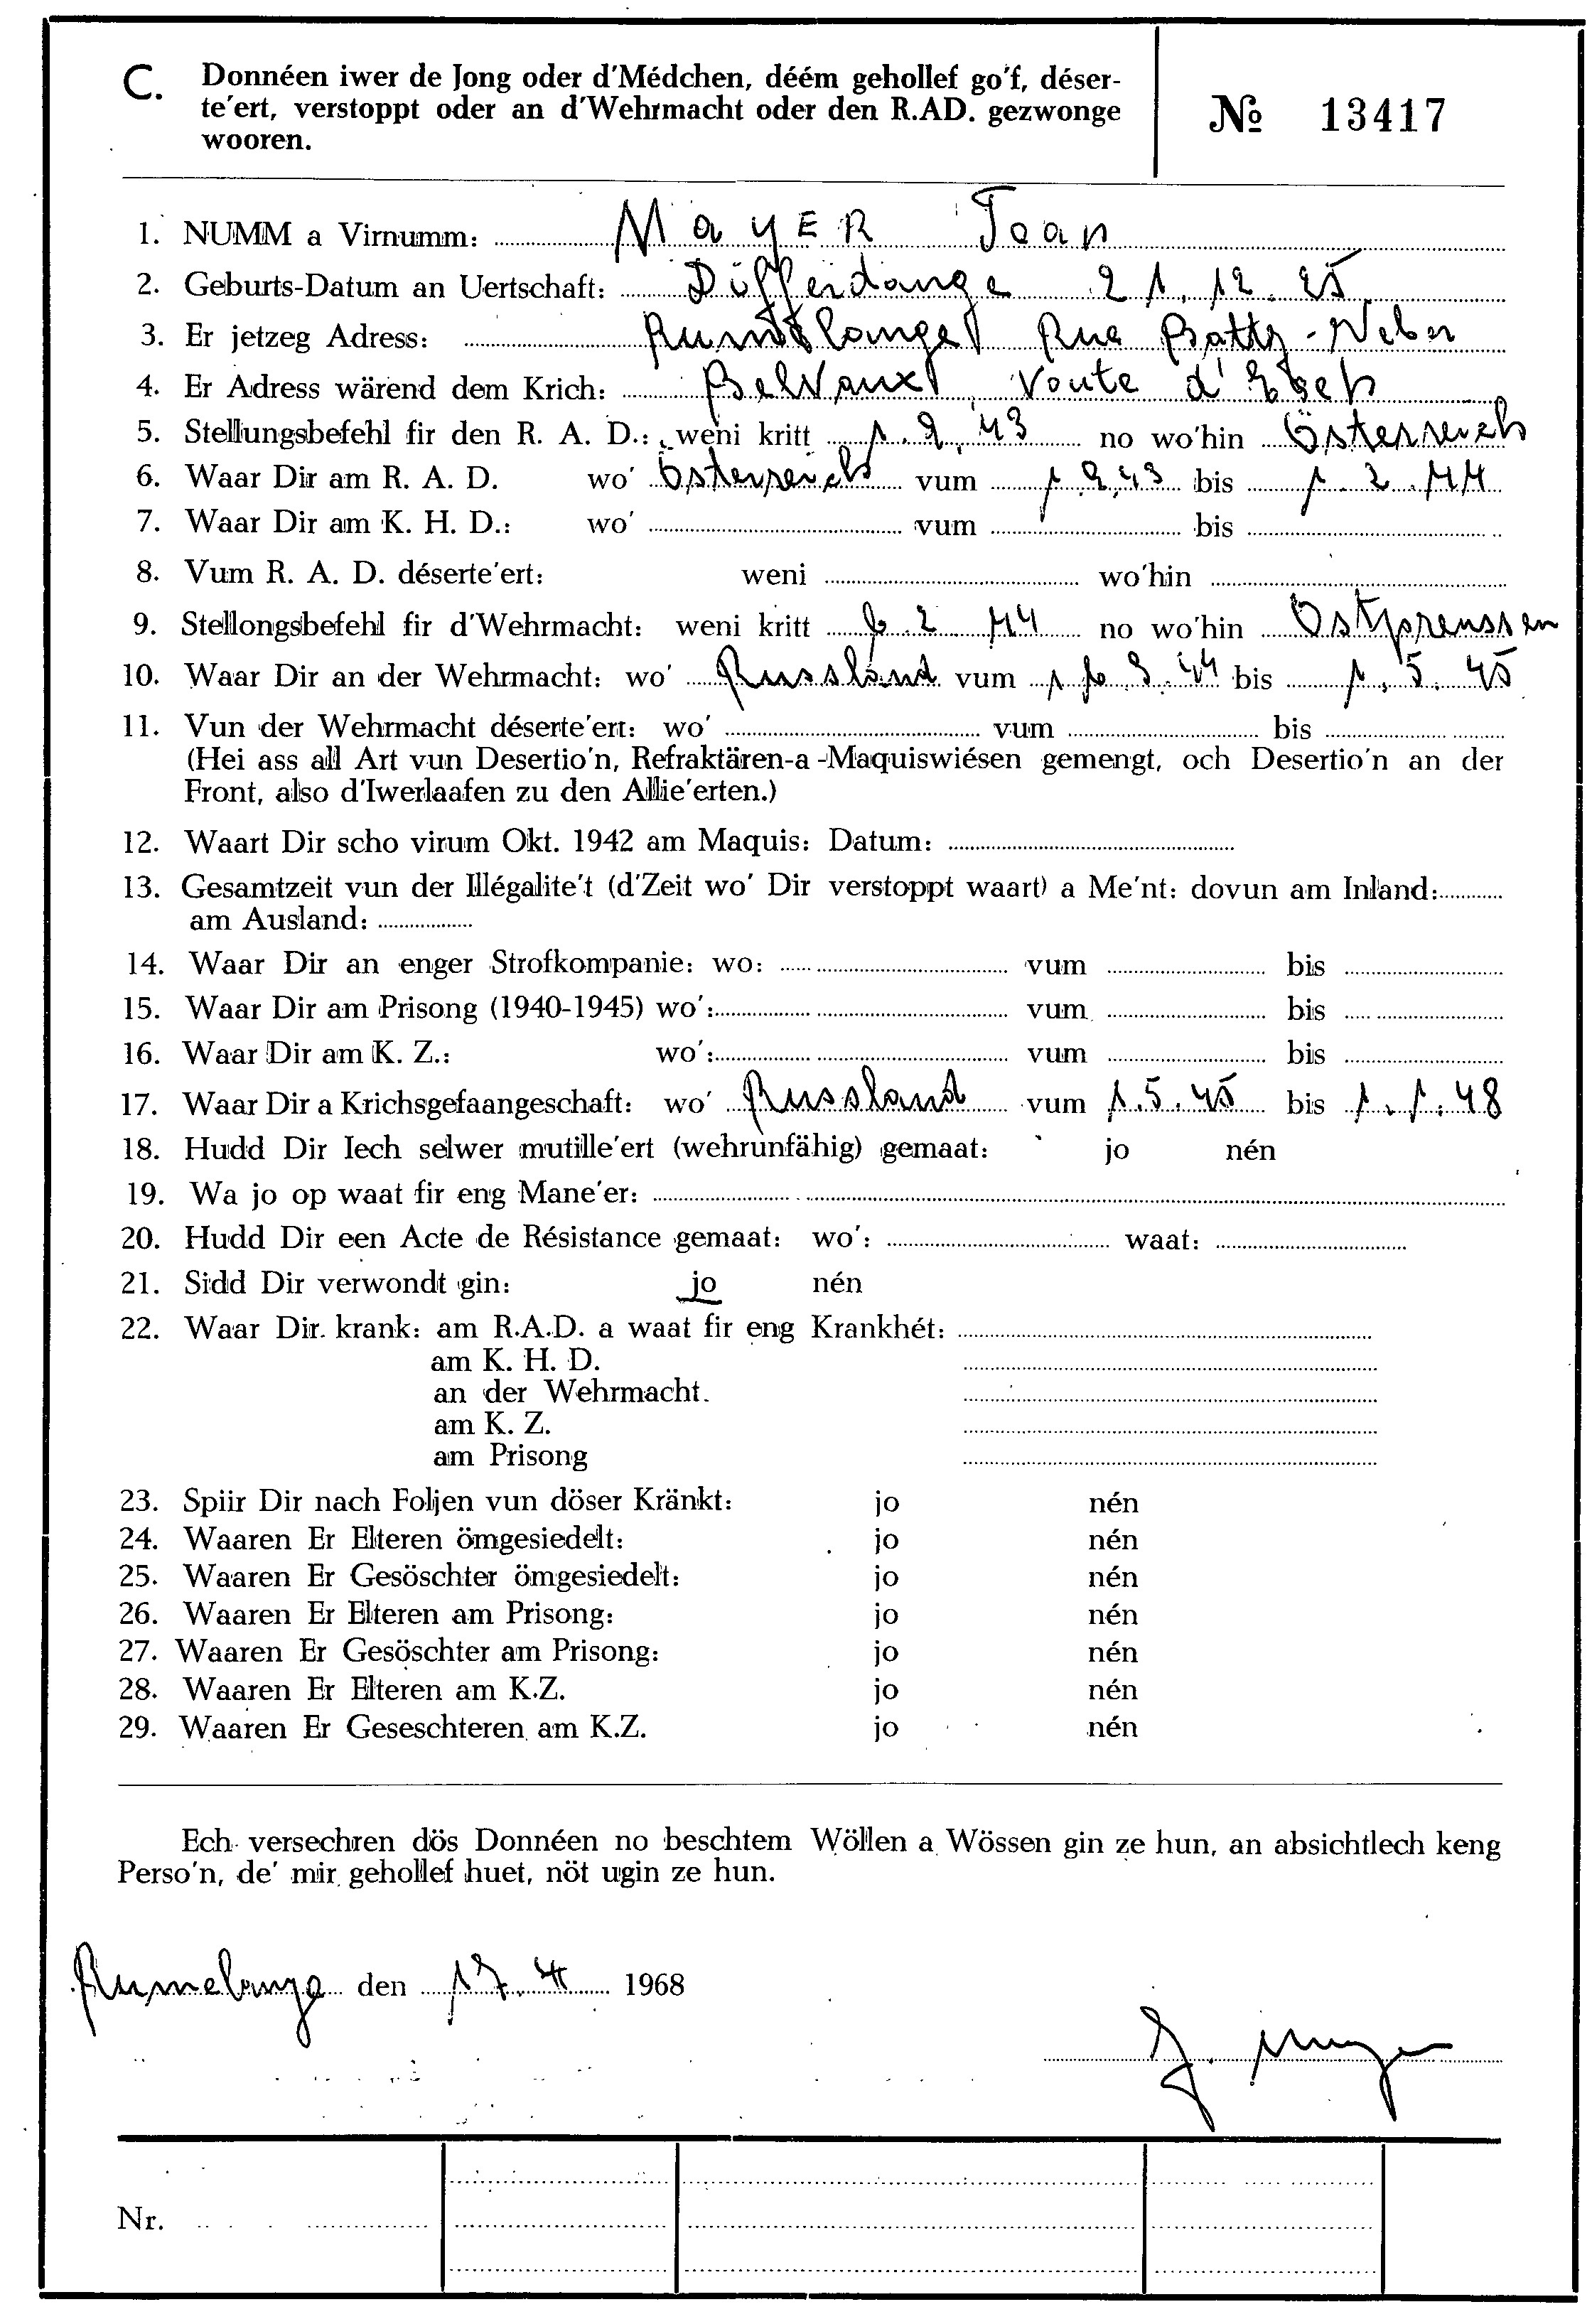 C. Donnéen iwer de Jong oder d'Médchen, déém gehollef go'f, déser-
te'ert, verstoppt oder an d'Wehrmacht oder den R.AD. gezwonge
wooren.
№ 13417
1. NUMM a Virnumm: MayER Jean
2. Geburts-Datum an Uertschaft: Differdange 21.12.25
3. Er jetzeg Adress: Rumelange Rue Batty-Weber
4. Er Adress wärend dem Krich: Belvaux route d'Esch
5. Stellungsbefehl fir den R. A. D.: weni kritt 1.9.43 no wo'hin Österreich
6. Waar Dir am R. A. D. wo' Österreich vum 1.9.43 bis 1.2.44
7. Waar Dir am K. H. D.: wo' vum bis
8. Vum R. A. D. déserte'ert: weni wo'hin
9. Stellongsbefehl fir d'Wehrmacht: weni kritt 6.2 44 no wo'hin Ostpreussen
10. Waar Dir an der Wehrmacht: wo' Russland vum 44 bis 1.5.45
11. Vun der Wehrmacht déserte'ert: wo' vum bis
(Hei ass all Art vun Desertio'n, Refraktären-a-Maquiswiésen gemengt, och Desertio'n an der
Front, also d'Iwerlaafen zu den Allie'erten.)
12. Waart Dir scho virum Okt. 1942 am Maquis: Datum:
13. Gesamtzeit vun der Illégalite't (d'Zeit wo' Dir verstoppt waart) a Me'nt: dovun am Inland:
am Ausland:
14. Waar Dir an enger Strofkompanie: wo: vum bis
15. Waar Dir am Prisong (1940-1945) wo': vum bis
16. Waar Dir am K. Z.: wo': vum bis
17. Waar Dir a Krichsgefaangeschaft: wo' Russland vum 1.5.45 bis 1.1.48
18. Hudd Dir Iech selwer mutille'ert (wehrunfähig) gemaat: jo nén
19. Wa jo op waat fir eng Mane'er:
20. Hudd Dir een Acte de Résistance gemaat: wo': waat:
21. Sidd Dir verwondt gin: jo nén
22. Waar Dir. krank: am R.A.D. a waat fir eng Krankhét:
am K. H. D.
an der Wehrmacht.
am K. Z.
am Prisong
23. Spiir Dir nach Foljen vun döser Kränkt: jo nén
24. Waaren Er Elteren ömgesiedelt: jo nén
25. Waaren Er Gesöschter ömgesiedelt: jo nén
26. Waaren Er Elteren am Prisong: jo nén
27. Waaren Er Gesöschter am Prisong: jo nén
28. Waaren Er Elteren am K.Z. jo nén
29. Waaren Er Geseschteren am K.Z. jo nén
Ech versechren dös Donnéen no beschtem Wöllen a Wössen gin ze hun, an absichtlech keng
Perso'n, de' mir gehollef huet, nöt ugin ze hun.
Rumelange den 17.4 1968
Nr.